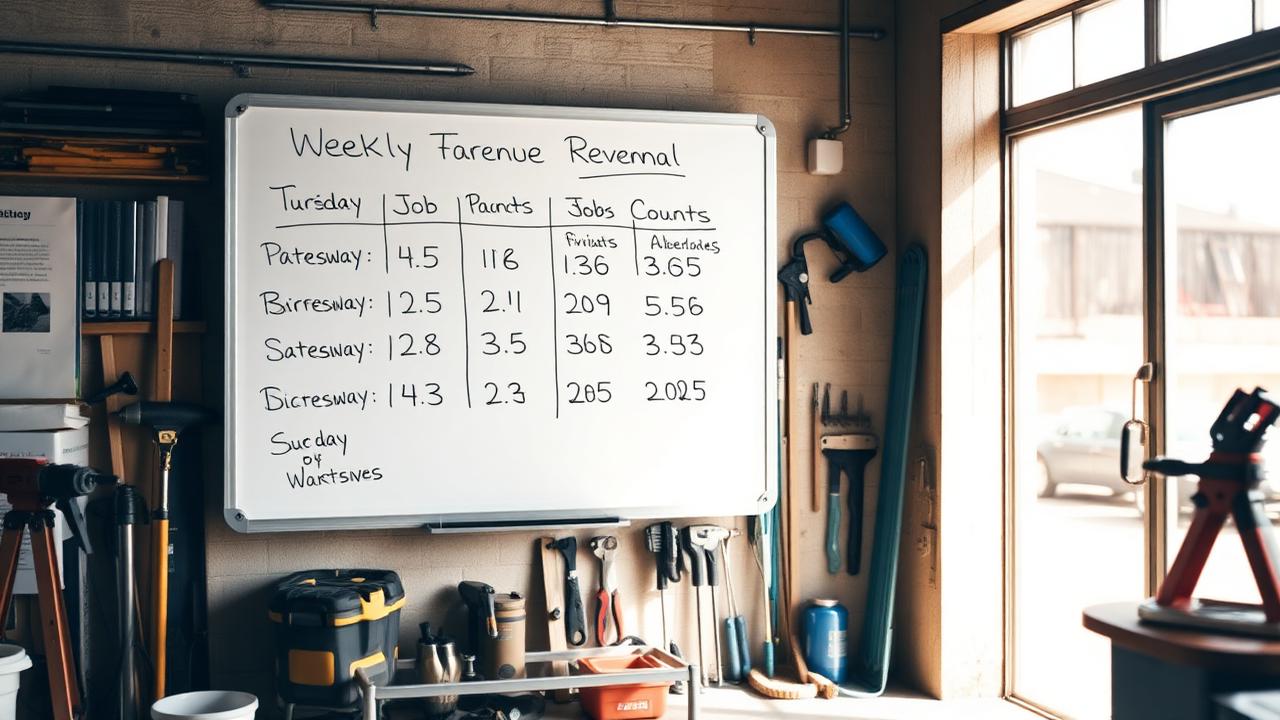 Weekly Farenue Revernal
Tursday Job Pacncts Jobs Counts
Fivisits Alcertades
Patesway: 4.5 116 1.36 3.65
Birresway: 2.5 2.11 209 5.56
Satesway: 2.8 3.5 368 3.53
Dicresway: 4.3 2.3 285 2025
Sucday
oy
Wartsives